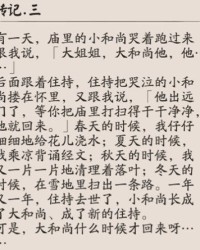 转记.三
有一天，庙里的小和尚哭着跑过来
跟我说，「大姐姐，大和尚他，他…
…」
后面跟着住持，住持把哭泣的小和
尚搂在怀里，又跟我说，「他出远
门了，等你把庙打扫得干干净净，
他就回来。」春天的时候，我仔仔
细细地给花儿浇水；夏天的时候，
我乘凉背诵经文；秋天的时候，我
又一片一片地清理着落叶；冬天的
时候，在雪地里扫出一条路。一年
又一年，住持去世了，小和尚长成
了大和尚、成了新的住持。
可是，大和尚什么时候才回来呀…
…